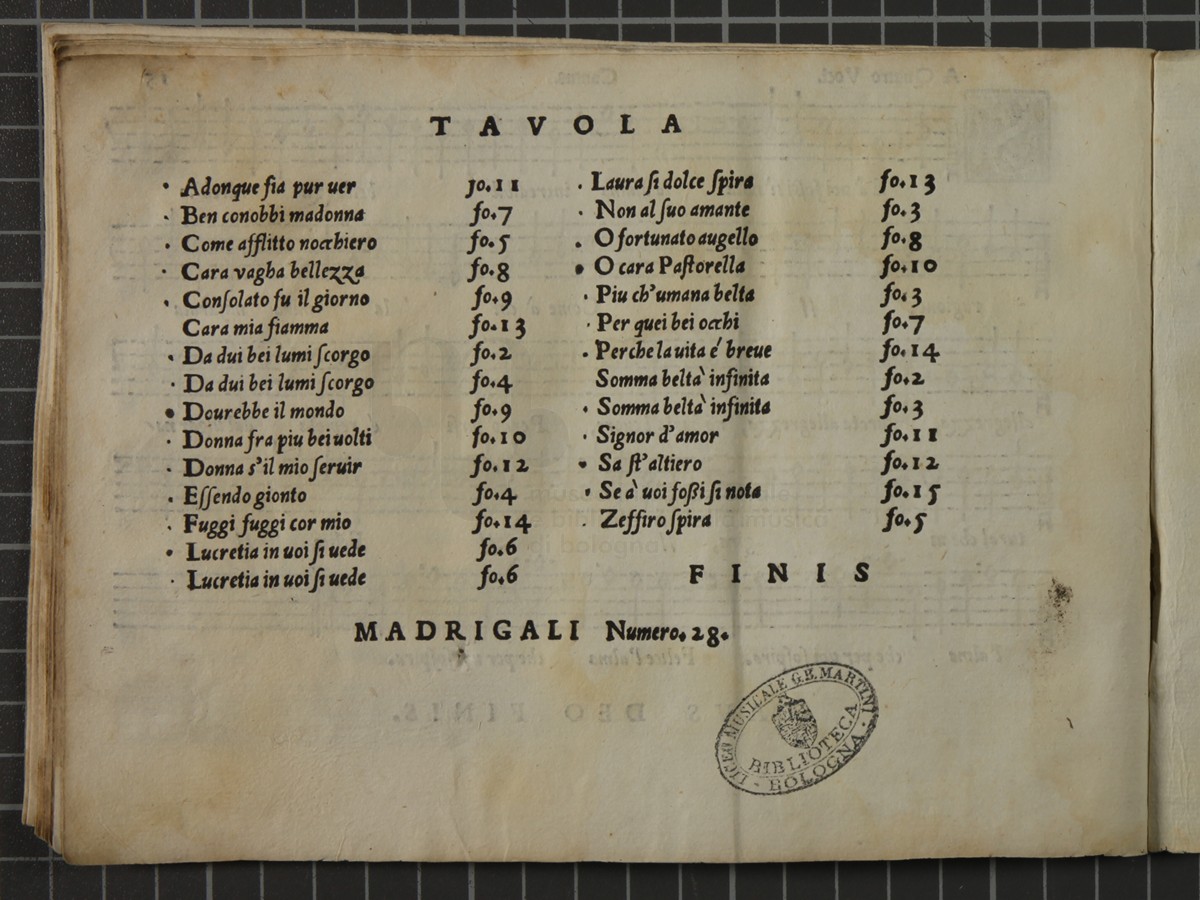 TAVOLA
Adonque sia pur uer fo.11
Ben conobbi madonna fo.7
Come afflitto nocchiero fo.5
Cara vagha bellezza fo.8
Consolato fu il giorno fo.9
Cara mia fiamma fo.13
Da dui bei lumi scorgo fo.2
Da dui bei lumi scorgo fo.4
Dourebbe il mondo fo.9
Donna fra piu bei uolti fo.10
Donna s'il mio seruir fo.12
Essendo gionto fo.4
Fuggi fuggi cor mio fo.14
Lucretia in uoi si uede fo.6
Lucretia in uoi si uede fo.6
Laura si dolce spira fo.13
Non al suo amante fo.3
O fortunato augello fo.8
O cara Pastorella fo.10
Piu ch'umana belta fo.3
Per quei bei occhi fo.7
Perche la uita é breue fo.14
Somma beltà infinita fo.2
Somma beltà infinita fo.3
Signor d'amor fo.11
Sa st'altiero fo.12
Se à uoi fossi si nota fo.15
Zeffiro spira fo.5
FINIS
MADRIGALI Numero.28.
LICEO MUSICALE G.B. MARTINI
BIBLIOTECA
BOLOGNA